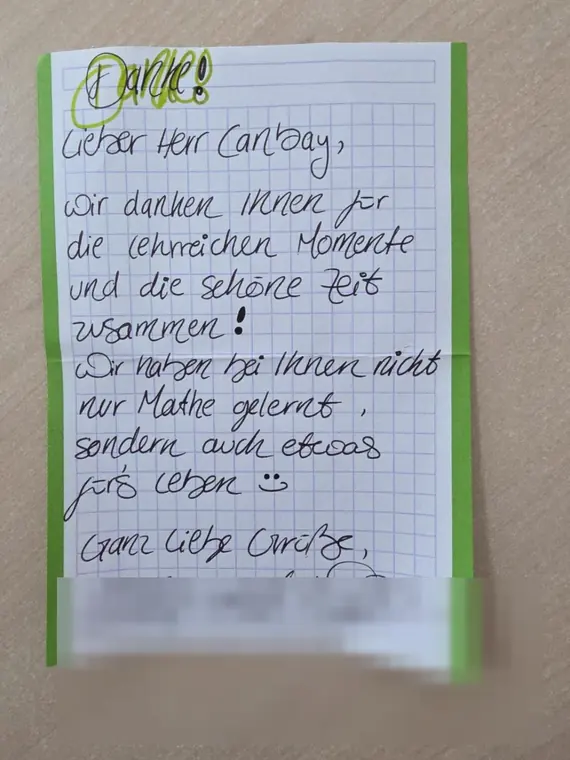 Danke!
Lieber Herr Canbay,
wir danken Ihnen für
die lehrreichen Momente
und die schöne Zeit
zusammen!
Wir haben bei Ihnen nicht
nur Mathe gelernt,
sondern auch etwas
für's Leben :)
Ganz liebe Grüße,